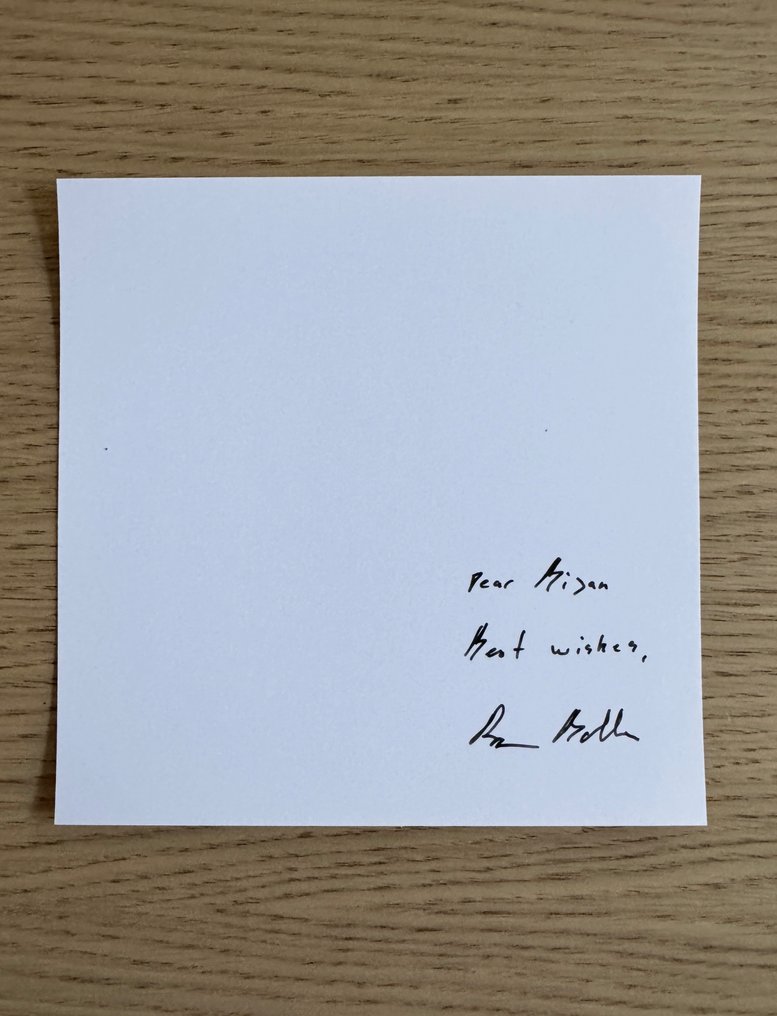 Dear Bijan
Best wishes,